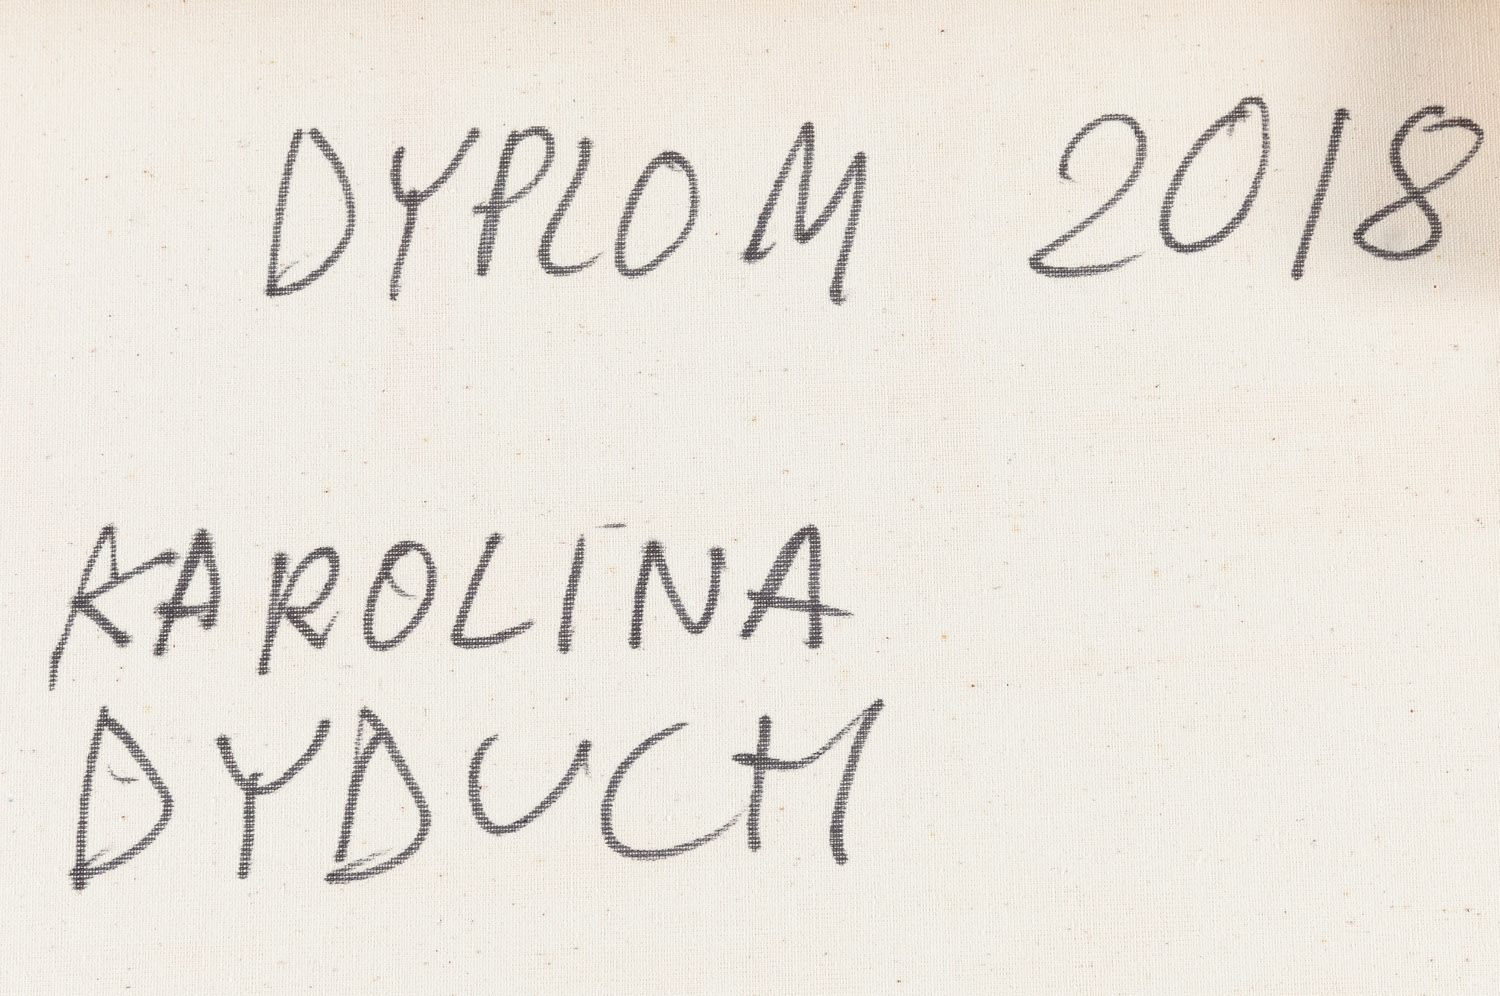 DYPLOM 2018
KAROLINA
DYDUCH